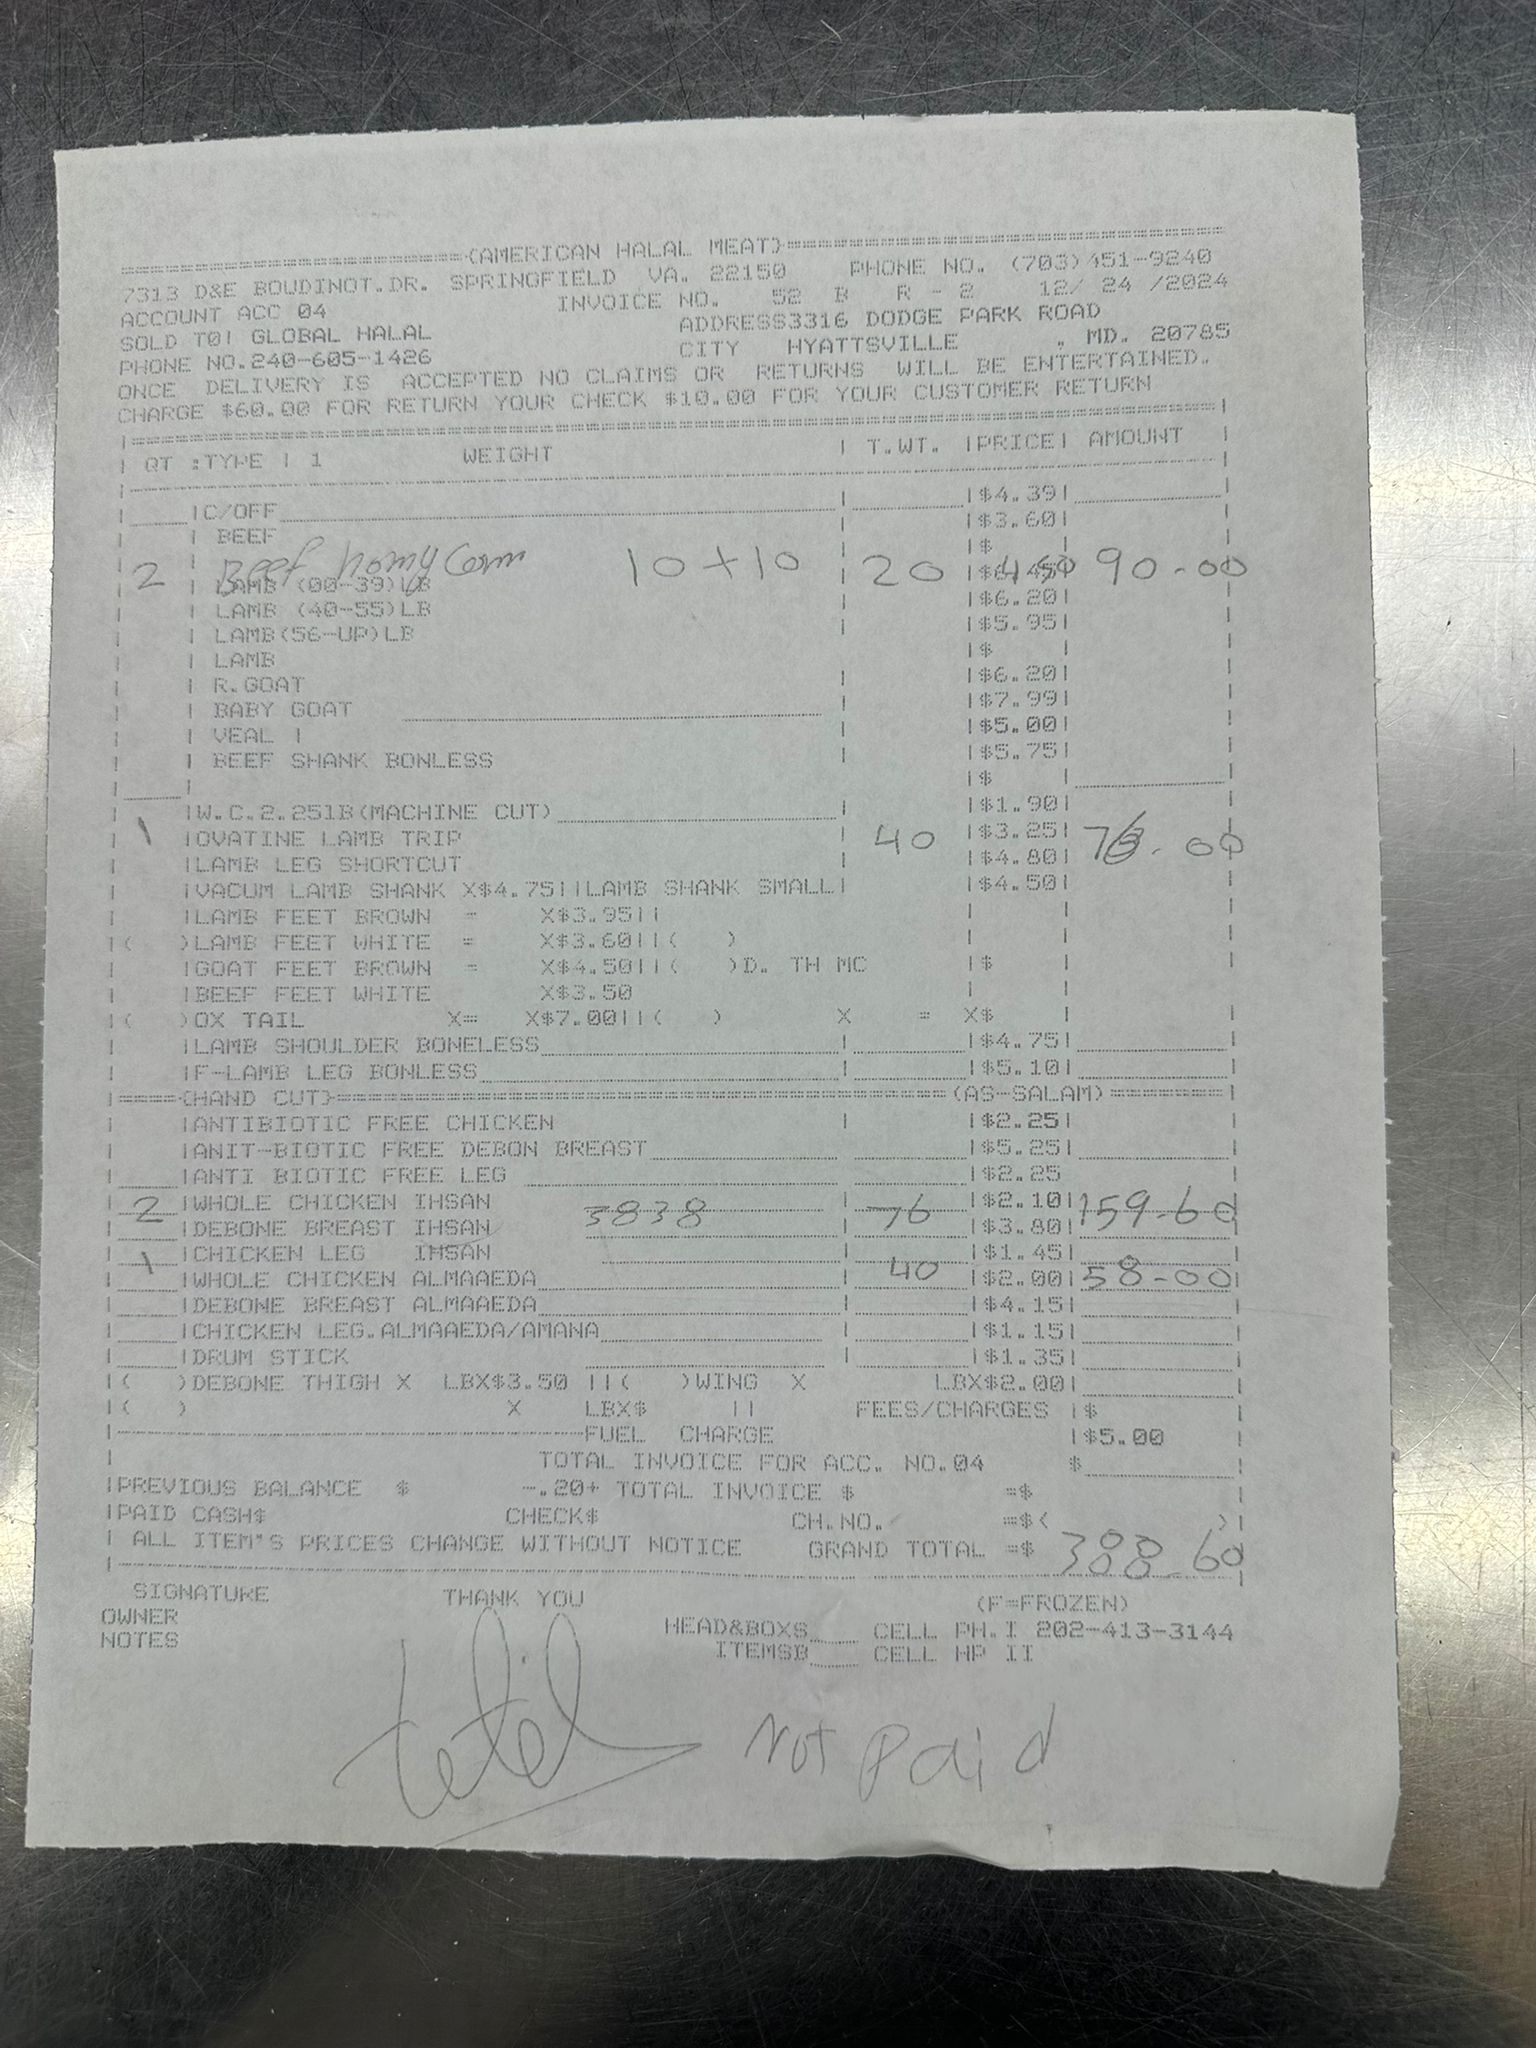 (AMERICAN HALAL MEAT)
7313 D&E BOUDINOT.DR. SPRINGFIELD VA. 22150 PHONE NO. (703)451-9240
ACCOUNT ACC 04 INVOICE NO. 52 B R - 2 12/ 24 /2024
SOLD TO! GLOBAL HALAL ADDRESS3316 DODGE PARK ROAD
PHONE NO.240-605-1426 CITY HYATTSVILLE . MD. 20785
ONCE DELIVERY IS ACCEPTED NO CLAIMS OR RETURNS WILL BE ENTERTAINED.
CHARGE $60.00 FOR RETURN YOUR CHECK $10.00 FOR YOUR CUSTOMER RETURN
QT :TYPE | 1 WEIGHT T.WT. |PRICE| AMOUNT
C/OFF $4.39
BEEF $3.60
$
2 Beef 10+10 20 4.50 90.00
LAMB (00-39)LB $6.45
LAMB (40-55)LB $6.20
LAMB(56-UP)LB $5.95
LAMB $
R.GOAT $6.20
BABY GOAT $7.99
VEAL | $5.00
BEEF SHANK BONLESS $5.75
$
W.C.2.25lB(MACHINE CUT) $1.90
1 OVATINE LAMB TRIP 40 $3.25 76.00
LAMB LEG SHORTCUT $4.80
VACUM LAMB SHANK X$4.75||LAMB SHANK SMALL| $4.50
LAMB FEET BROWN = X$3.95||
( )LAMB FEET WHITE = X$3.60||( )
GOAT FEET BROWN = X$4.50||( )D. TH MC |$
BEEF FEET WHITE X$3.50
( )OX TAIL X= X$7.00||( ) X = X$
LAMB SHOULDER BONELESS $4.75
F-LAMB LEG BONLESS $5.10
(HAND CUT) (AS-SALAM)
ANTIBIOTIC FREE CHICKEN $2.25
ANIT-BIOTIC FREE DEBON BREAST $5.25
ANTI BIOTIC FREE LEG $2.25
2 WHOLE CHICKEN IHSAN 3838 76 $2.10 159.60
DEBONE BREAST IHSAN $3.80
1 CHICKEN LEG IHSAN 40 $1.45 58.00
WHOLE CHICKEN ALMAAEDA $2.00
DEBONE BREAST ALMAAEDA $4.15
CHICKEN LEG.ALMAAEDA/AMANA $1.15
DRUM STICK $1.35
( )DEBONE THIGH X LBX$3.50 ||( )WING X LBX$2.00
( ) X LBX$ || FEES/CHARGES |$
FUEL CHARGE |$5.00
TOTAL INVOICE FOR ACC. NO.04 $
PREVIOUS BALANCE $ -.20+ TOTAL INVOICE $ =$
PAID CASH$ CHECK$ CH.NO. =$( )
ALL ITEM'S PRICES CHANGE WITHOUT NOTICE GRAND TOTAL =$ 388.60
SIGNATURE THANK YOU (F=FROZEN)
OWNER HEAD&BOXS CELL PH.I 202-413-3144
NOTES ITEMSB CELL HP II
Not Paid